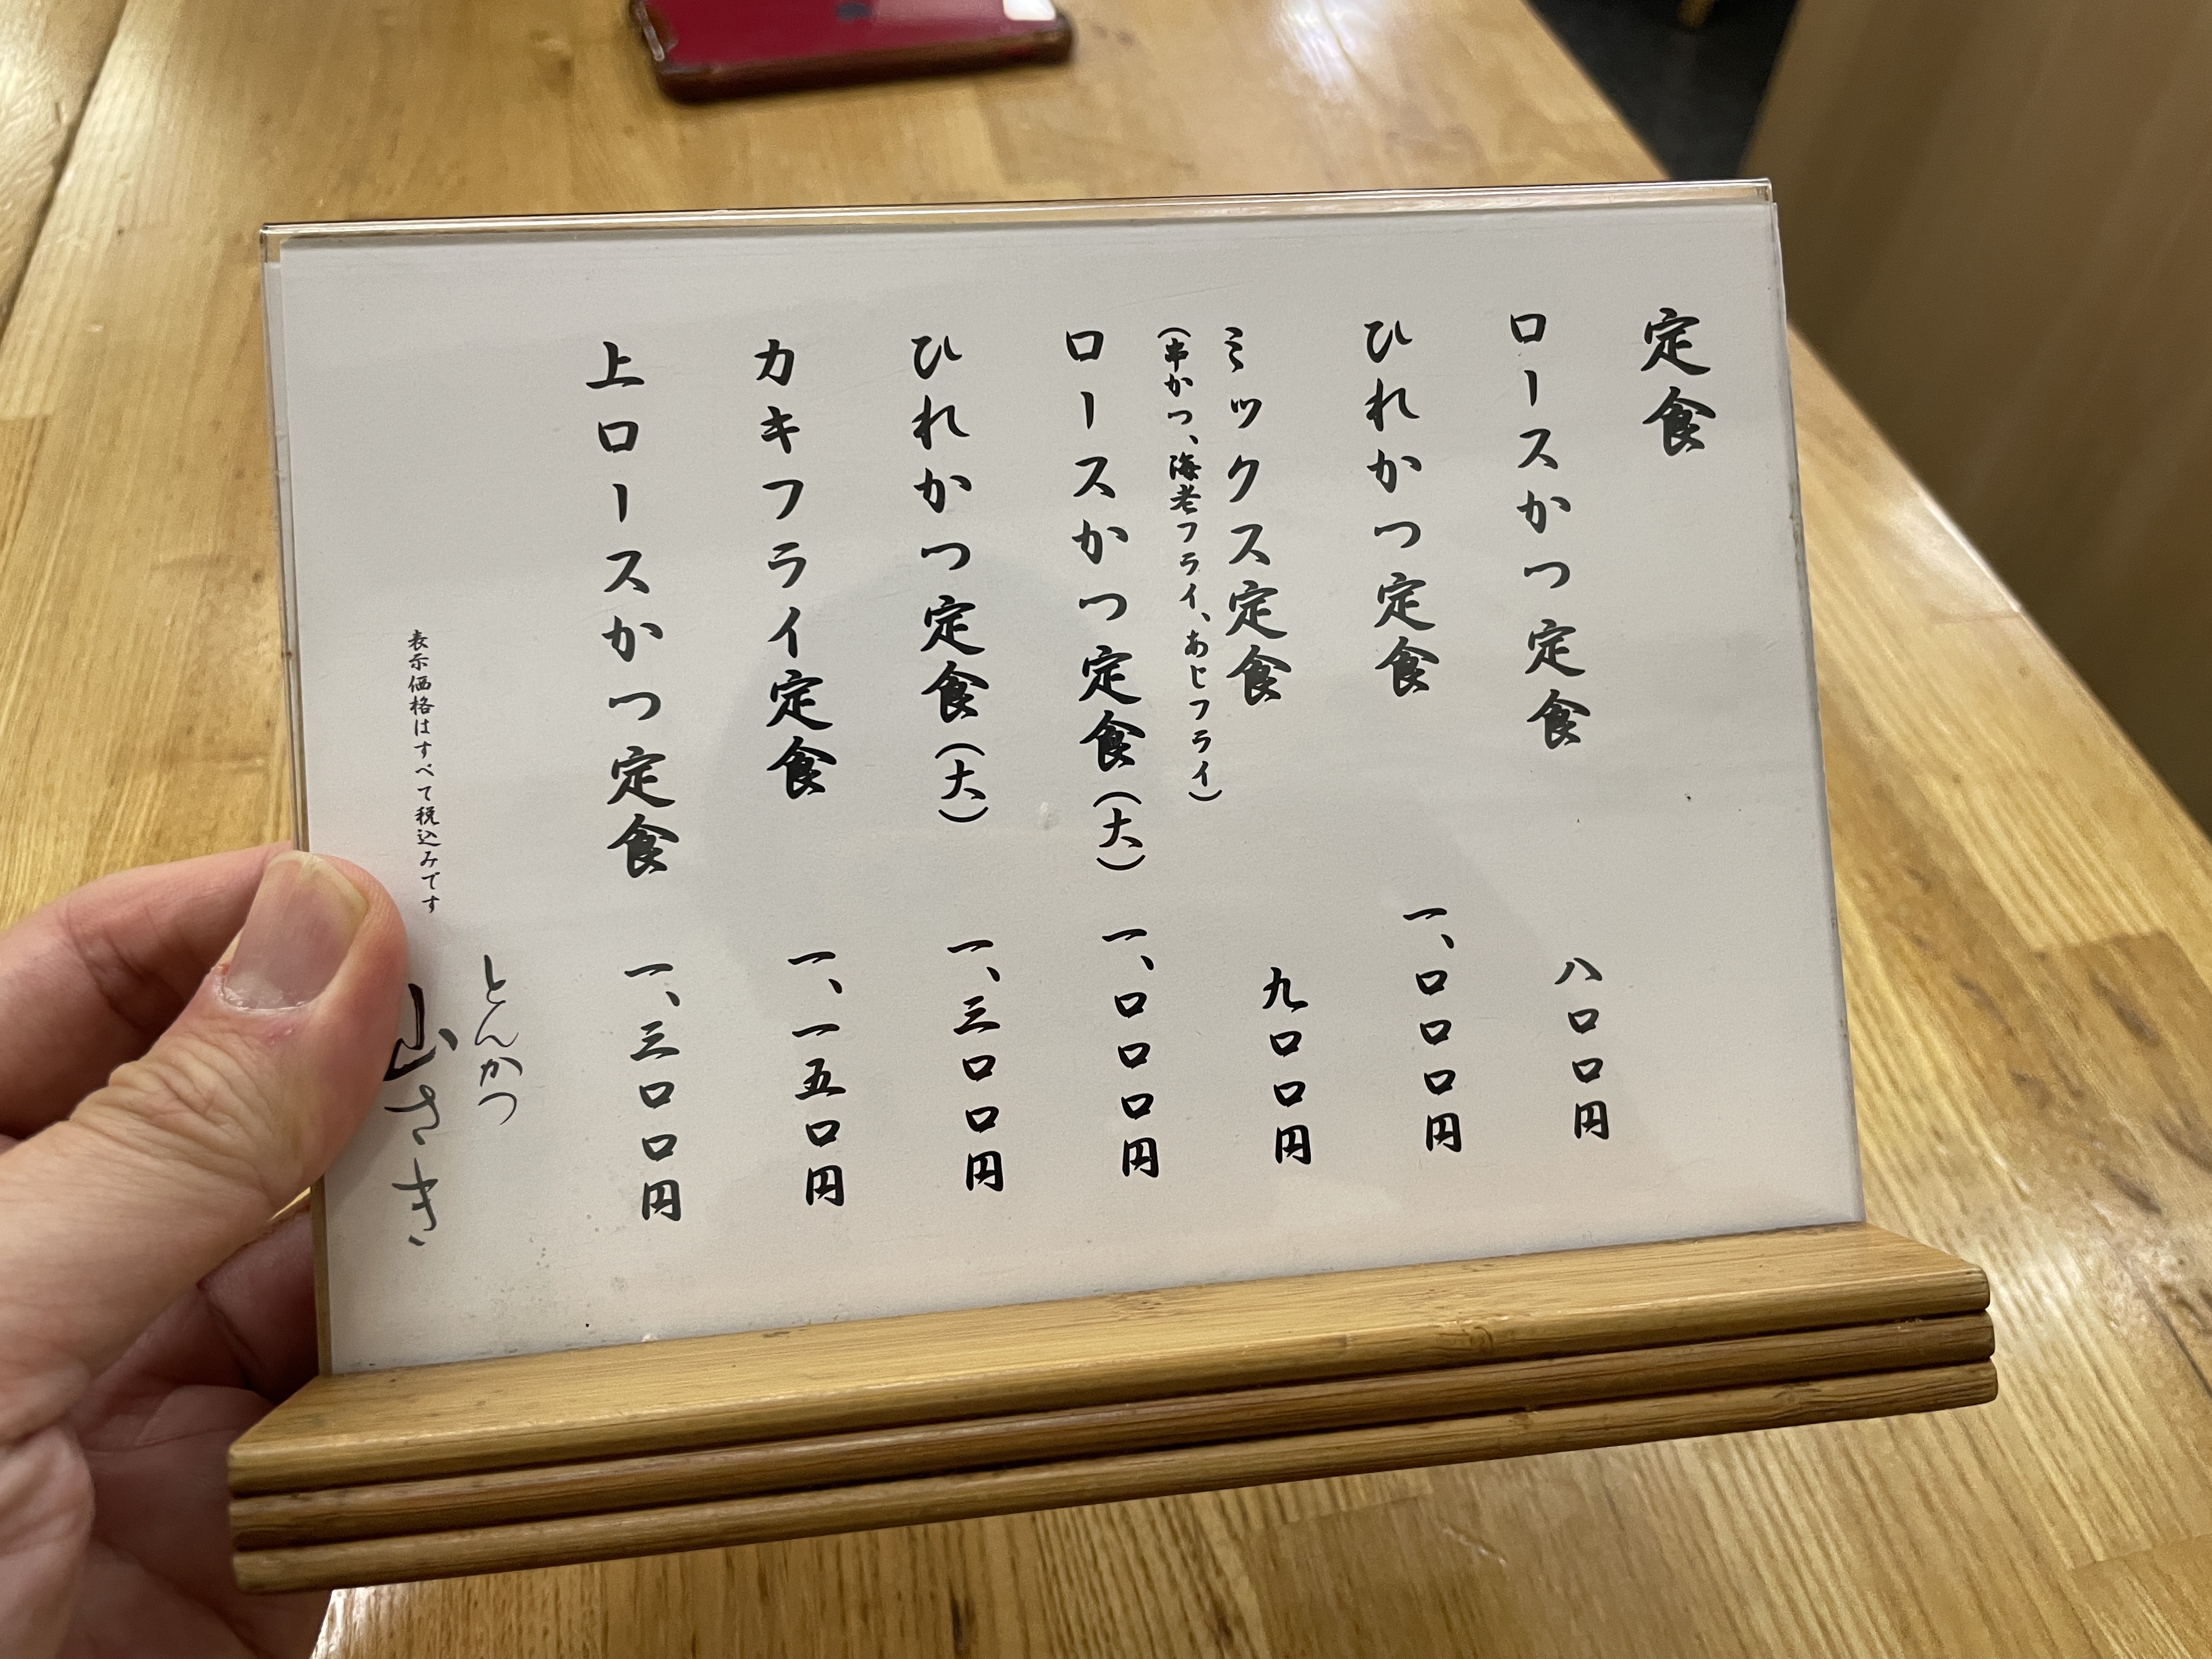 定食
ロースかつ定食 八〇〇円
ひれかつ定食 一、〇〇〇円
ミックス定食 九〇〇円
（串かつ、海老フライ、あじフライ）
ロースかつ定食（大） 一、〇〇〇円
ひれかつ定食（大） 一、三〇〇円
カキフライ定食 一、一五〇円
上ロースかつ定食 一、三〇〇円
とんかつ
山さき
表示価格はすべて税込みです